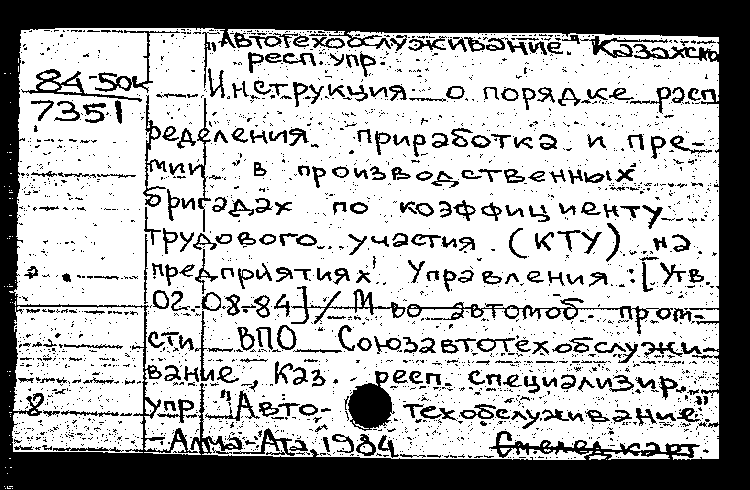 "Автотехобслуживание." Казахска
респ. упр.
84-50к
7351
Инструкция о порядке расп
ределения приработка и пре-
мии в производственных
бригадах по коэффициенту
трудового участия (КТУ) на
предприятиях Управления: [Утв.
02.08.84] / М-во автомоб. пром-
сти. ВПО Союзавтотехобслужи-
вание, Каз. респ. специализир.
8
упр. "Авто- техобслуживание"
- Алма-Ата, 1984 См. след. карт.